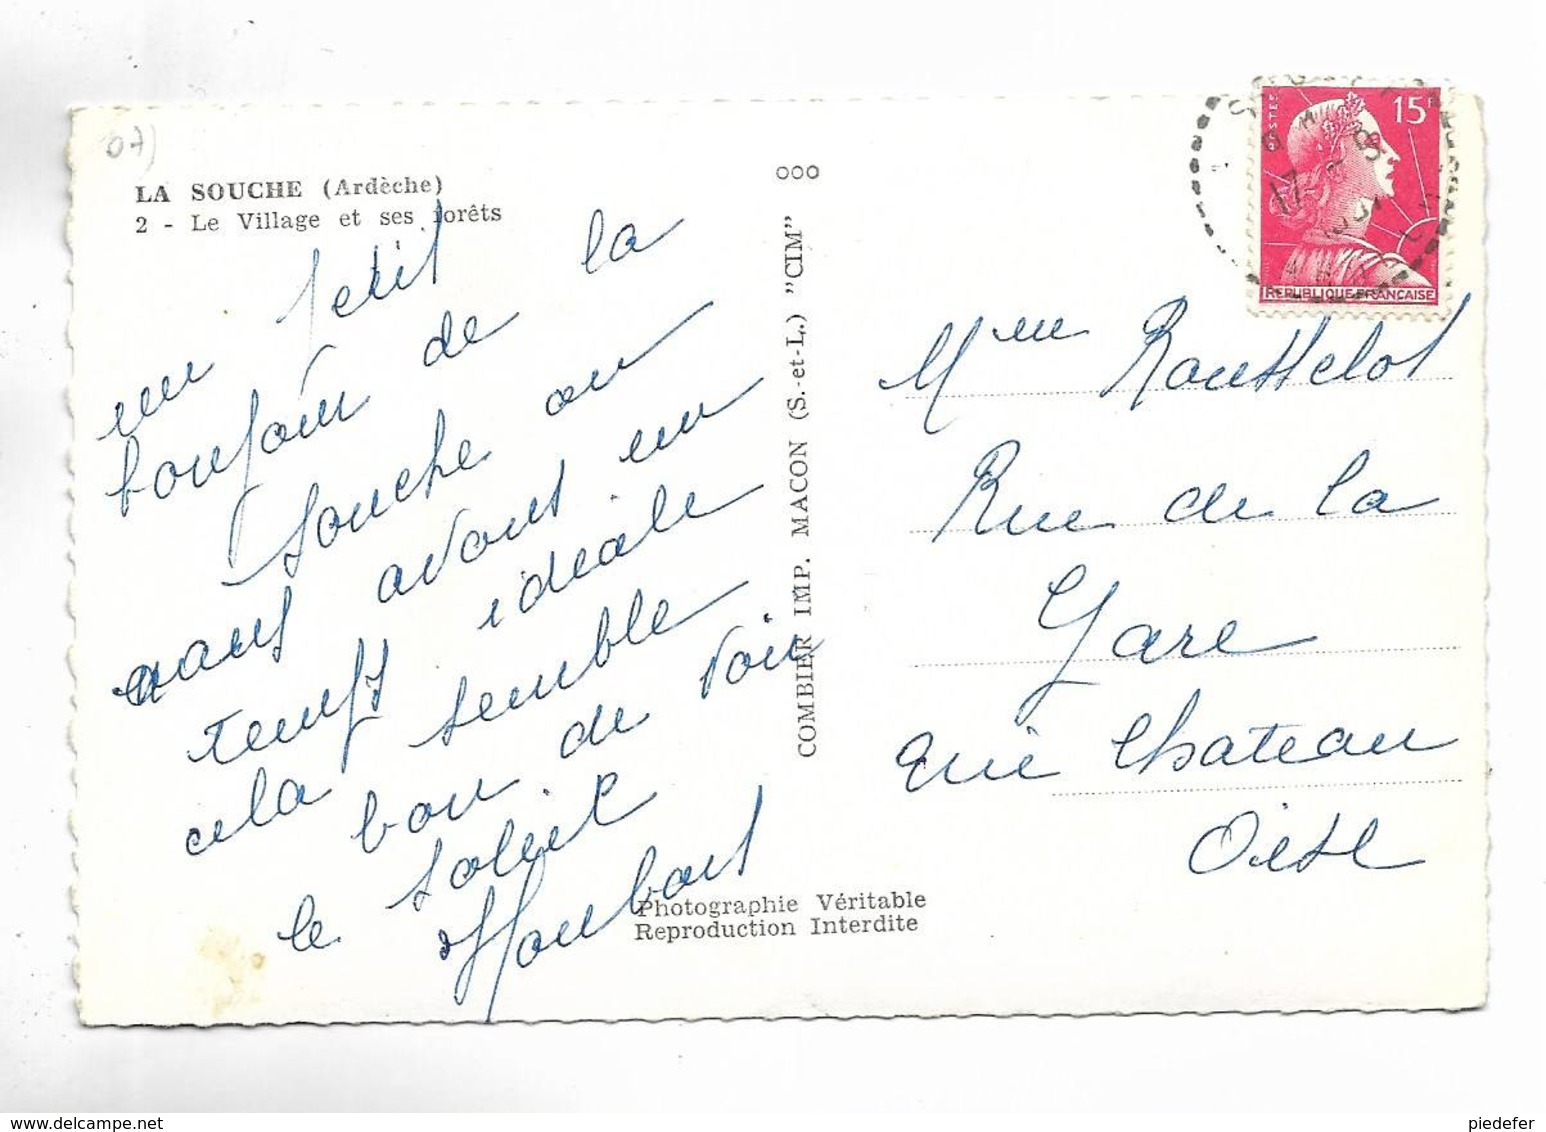 07)
LA SOUCHE (Ardèche)
2 - Le Village et ses forêts
un petit
bonjour de la
Souche ou
nous avons un
temps idéale
cela semble
bon de voir
le soleil
COMBIER IMP. MACON (S.-et-L.) "CIM"
Photographie Véritable
Reproduction Interdite
15F
POSTES
REPUBLIQUE FRANÇAISE
Mme Rousselot
Rue de la
Gare
Chateau
Oise
delcampe.net
piedefer